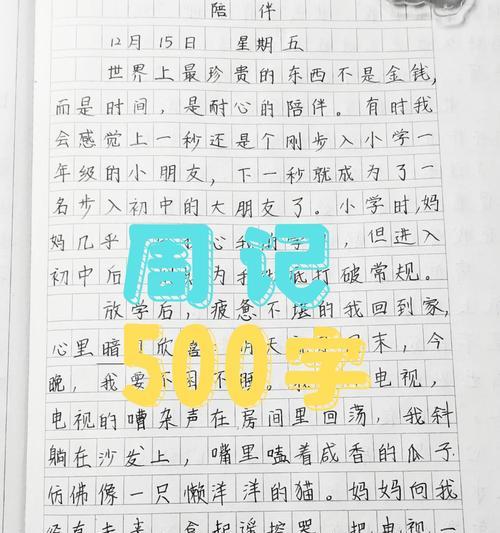 陪伴
12月15日 星期五
世界上最珍贵的东西不是金钱，
而是时间，是耐心的陪伴。有时我
会感觉上一秒还是个刚步入小学一
年级的小朋友，下一秒就成为了一
名步入初中的大朋友了。小学时，妈
妈几乎 心我的 ，但进入
初中后 为我 底打破常规。
放学后，疲惫不堪的我回到家，
心里暗 欣喜 天 末，今
晚，我要不 不 电视，
电视的嘈杂声在房间里回荡，我斜
躺在沙发上，嘴里嗑着咸香的瓜子
仿佛像一只懒洋洋的猫。妈妈向我
走来 拿起遥控器 把电视一
周记
500字